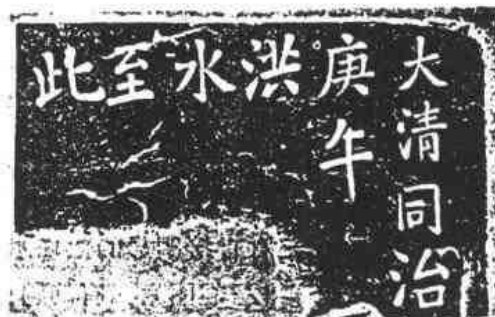 大清同治
庚午
洪水至此